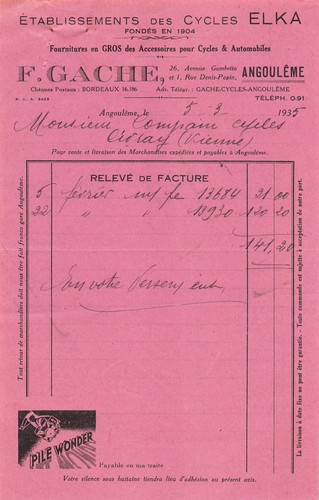 ÉTABLISSEMENTS DES CYCLES ELKA
FONDÉS EN 1904
Fournitures en GROS des Accessoires pour Cycles & Automobiles
F. GACHE,
26, Avenue Gambetta
et 1, Rue Denis-Papin,
ANGOULÊME
Chèques Postaux : BORDEAUX 16.196
Adr. Télégr. : GACHE-CYCLES-ANGOULÊME
TÉLÉPH. 0.91
Angoulême, le 5-3- 1935
Monsieur Compain cycles
Civray (Vienne)
Pour vente et livraison des Marchandises expédiées et payables à Angoulême.
RELEVÉ DE FACTURE
5 février 13684 21 00
22 " " 18930 120 20
141,20
En votre Versement
Tout retour de marchandises doit nous être fait franco gare Angoulême.
La livraison à date fixe ne peut être garantie. - Toute commande est sujette à acceptation de notre part.
PILE WONDER
Payable en ma traite
Votre silence sous huitaine tiendra lieu d'adhésion au présent avis.